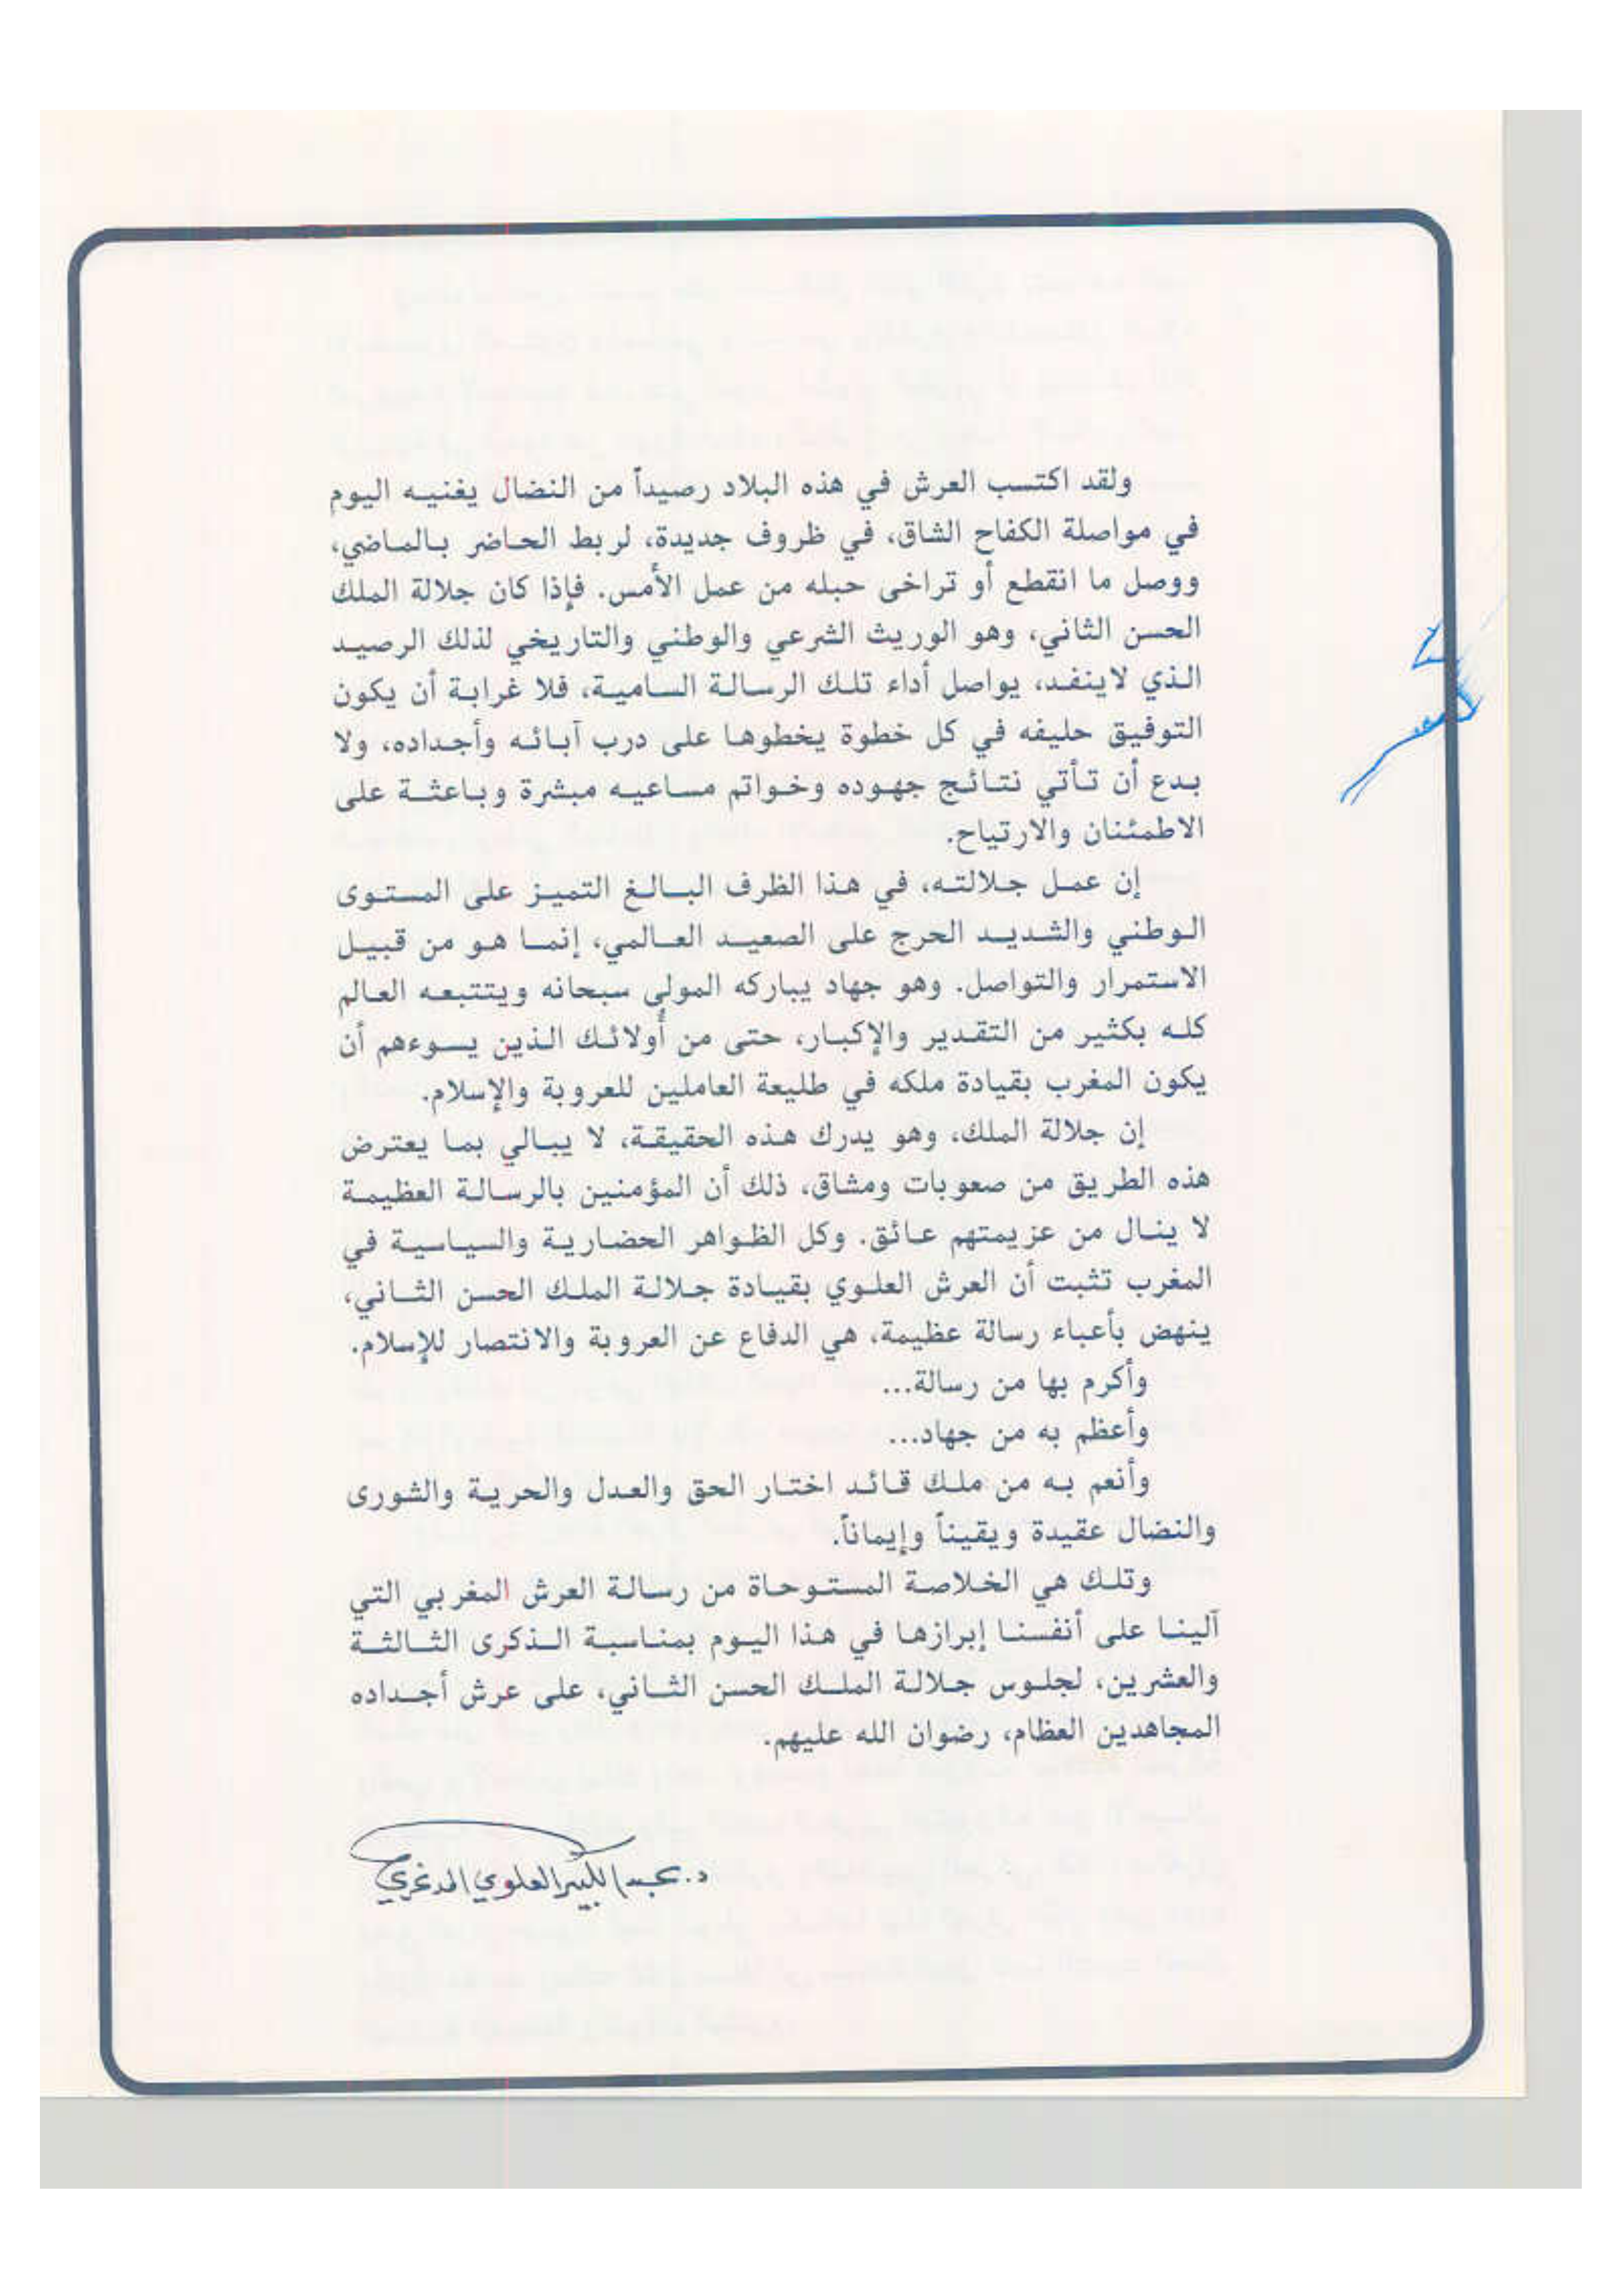 ولقد اكتسب العرش في هذه البلاد رصيداً من النضال يغنيه اليوم
في مواصلة الكفاح الشاق، في ظروف جديدة، لربط الحاضر بالماضي،
ووصل ما انقطع أو تراخى حبله من عمل الأمس. فإذا كان جلالة الملك
الحسن الثاني، وهو الوريث الشرعي والوطني والتاريخي لذلك الرصيد
الذي لاينفد، يواصل أداء تلك الرسالة السامية، فلا غرابة أن يكون
التوفيق حليفه في كل خطوة يخطوها على درب آبائه وأجداده، ولا
بدع أن تأتي نتائج جهوده وخواتم مساعيه مبشرة وباعثة على
الاطمئنان والارتياح.
إن عمل جلالته، في هذا الظرف البالغ التميز على المستوى
الوطني والشديد الحرج على الصعيد العالمي، إنما هو من قبيل
الاستمرار والتواصل. وهو جهاد يباركه المولى سبحانه ويتتبعه العالم
كله بكثير من التقدير والإكبار، حتى من أولائك الذين يسوءهم أن
يكون المغرب بقيادة ملكه في طليعة العاملين للعروبة والإسلام.
إن جلالة الملك، وهو يدرك هذه الحقيقة، لا يبالي بما يعترض
هذه الطريق من صعوبات ومشاق، ذلك أن المؤمنين بالرسالة العظيمة
لا ينال من عزيمتهم عائق. وكل الظواهر الحضارية والسياسية في
المغرب تثبت أن العرش العلوي بقيادة جلالة الملك الحسن الثاني،
ينهض بأعباء رسالة عظيمة، هي الدفاع عن العروبة والانتصار للإسلام.
وأكرم بها من رسالة...
وأعظم به من جهاد...
وأنعم به من ملك قائد اختار الحق والعدل والحرية والشورى
والنضال عقيدة ويقيناً وإيماناً.
وتلك هي الخلاصة المستوحاة من رسالة العرش المغربي التي
آلينا على أنفسنا إبرازها في هذا اليوم بمناسبة الذكرى الثالثة
والعشرين، لجلوس جلالة الملك الحسن الثاني، على عرش أجداده
المجاهدين العظام، رضوان الله عليهم.
د. عبد الكبير العلوي المدغري